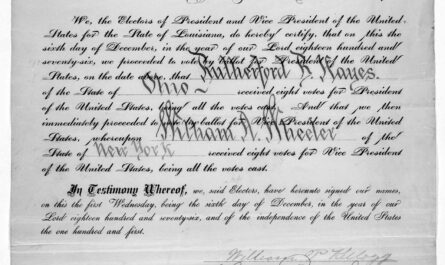 We, the Electors of President and Vice President of the United
States for the State of Louisiana, do hereby certify, that on this the
sixth day of December, in the year of our Lord eighteen hundred and
seventy-six, we proceeded to vote by ballot for President of the United
States, on the date above, that Rutherford B. Hayes.
of the State of Ohio received eight votes for President
of the United States, being all the votes cast. And that we then
immediately proceeded to vote by ballot for Vice President of the United
States, whereupon William A. Wheeler of the
State of New York received eight votes for Vice President
of the United States, being all the votes cast.
In Testimony Whereof, we, said Electors, have hereunto signed our names,
on this the first Wednesday, being the sixth day of December, in the year of our
Lord eighteen hundred and seventy-six, and of the independence of the United States
the one hundred and first.
William P. Kellogg